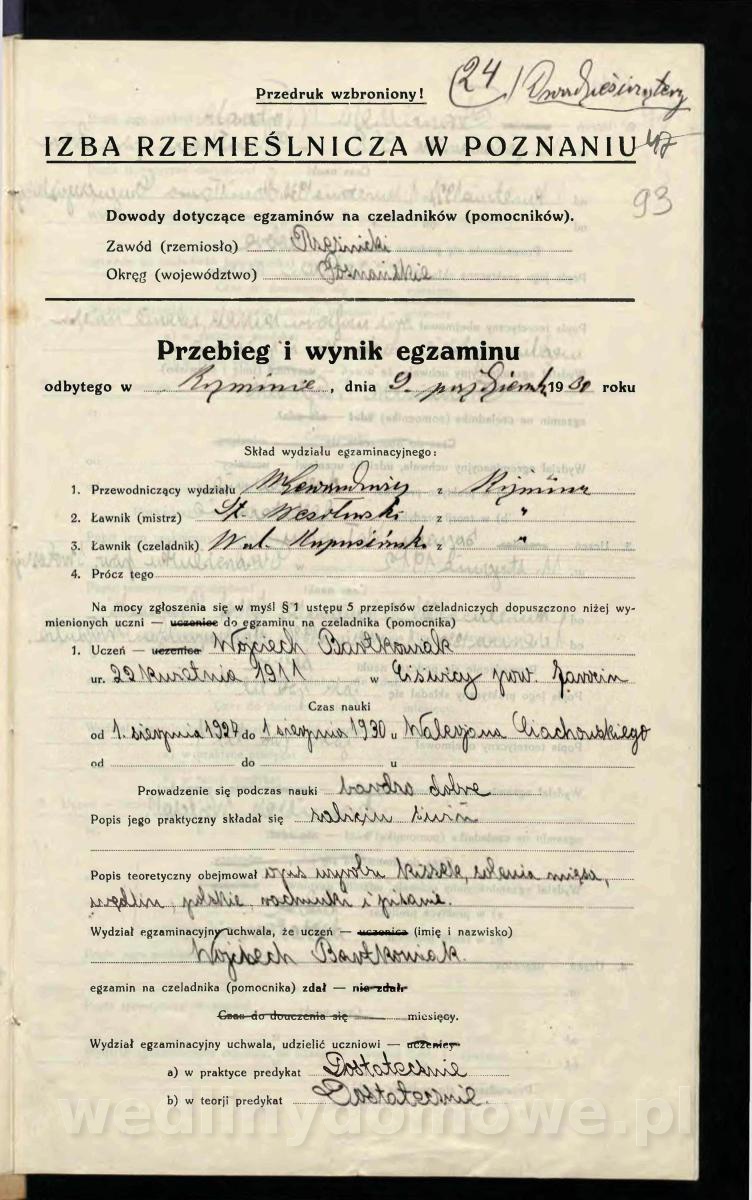 (24.) Dwadzieściacztery
Przedruk wzbroniony!
IZBA RZEMIEŚLNICZA W POZNANIU 47
93
Dowody dotyczące egzaminów na czeladników (pomocników).
Zawód (rzemiosło) Rzeźnicki
Okręg (województwo) Poznańskie
Przebieg i wynik egzaminu
odbytego w , dnia 9. październ. 1930 roku
Skład wydziału egzaminacyjnego:
1. Przewodniczący wydziału z
2. Ławnik (mistrz) St. Wesołowski z "
3. Ławnik (czeladnik) Wal. z "
4. Prócz tego
Na mocy zgłoszenia się w myśl § 1 ustępu 5 przepisów czeladniczych dopuszczono niżej wy-
mienionych uczni — uczenice do egzaminu na czeladnika (pomocnika)
1. Uczeń — uczenica Wojciech Bartkowiak
ur. 22 kwietnia 1911 w pow. Jarocin
Czas nauki
od 1. sierpnia 1927 do 1 sierpnia 1930 u Walerjana Ciachowskiego
od do u
Prowadzenie się podczas nauki bardzo dobre
Popis jego praktyczny składał się zabiciu świń
Popis teoretyczny obejmował opis wyrobu kiszek, solenia mięsa,
wędlin, polskie, rachunki i pisanie.
Wydział egzaminacyjny uchwala, że uczeń — uczenica (imię i nazwisko)
Wojciech Bartkowiak.
egzamin na czeladnika (pomocnika) zdał — nie zdał.
Czas do douczenia się miesięcy.
Wydział egzaminacyjny uchwala, udzielić uczniowi — uczenicy
a) w praktyce predykat Dostatecznie
b) w teorji predykat Dostatecznie.
wedlinydomowe.pl